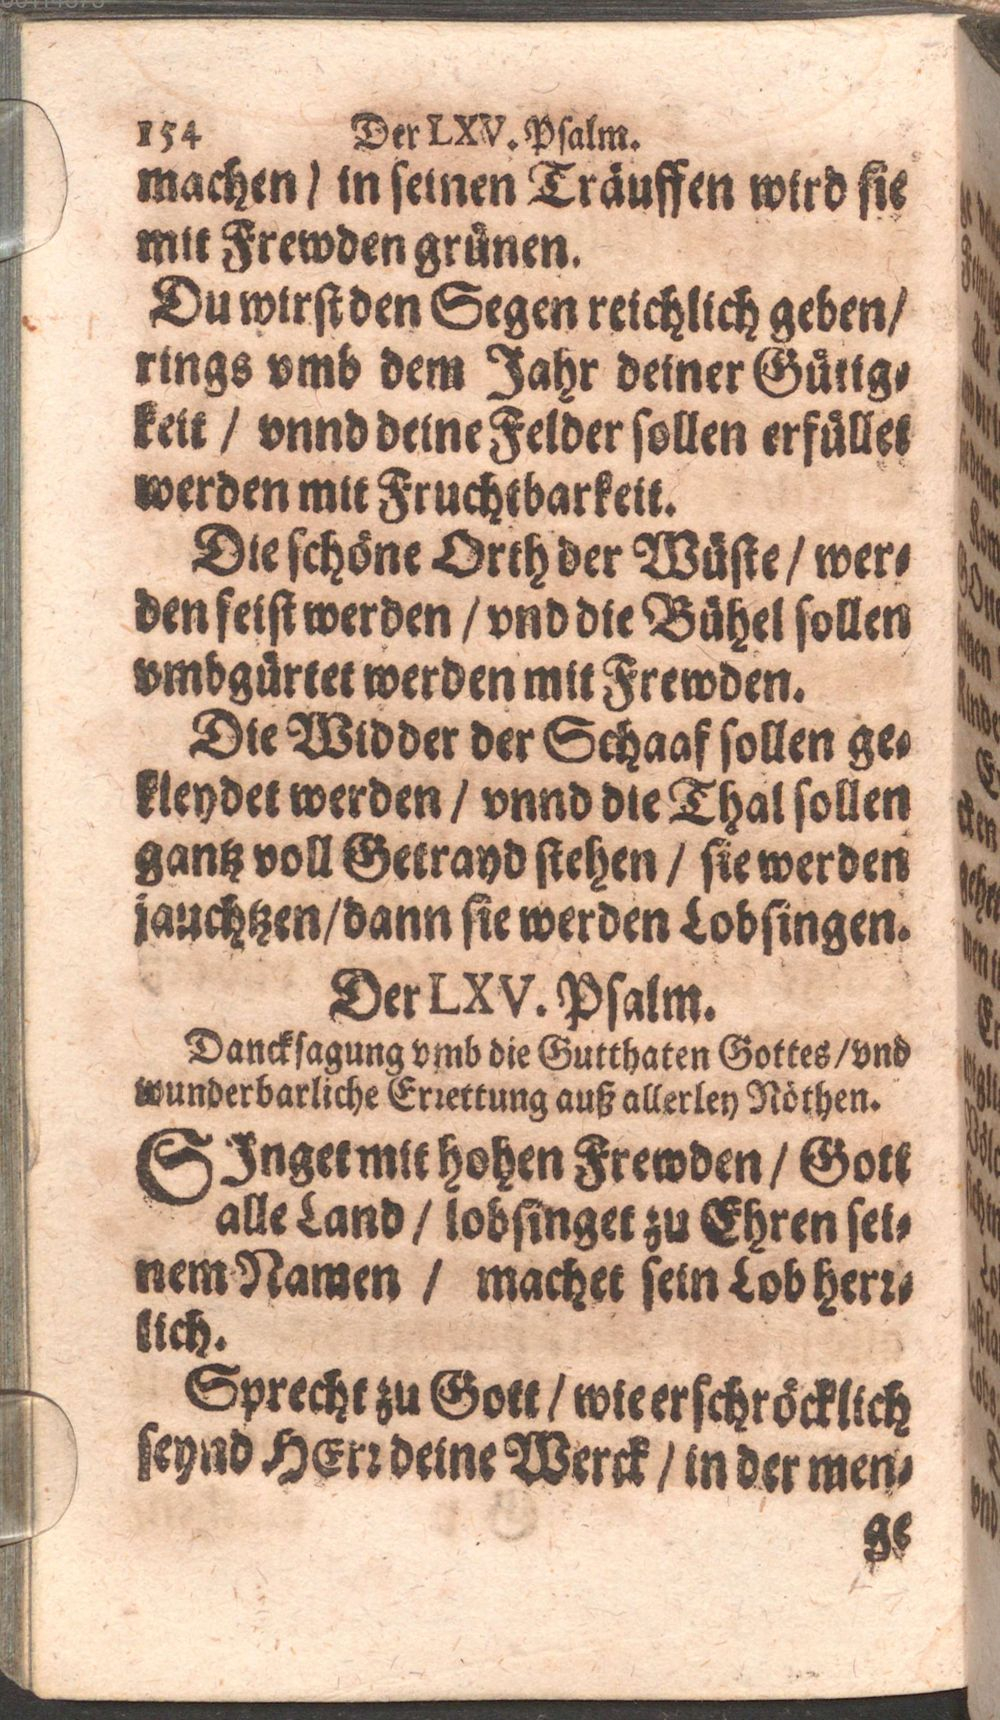 154 Der LXV. Psalm.
machen / in seinen Träuffen wird sie
mit Frewden grünen.
Du wirst den Segen reichlich geben/
rings vmb dem Jahr deiner Gütig-
keit / vnnd deine Felder sollen erfüllet
werden mit Fruchtbarkeit.
Die schöne Orth der Wüste / wer-
den feist werden / vnd die Bühel sollen
vmbgürtet werden mit Frewden.
Die Widder der Schaaf sollen ge-
kleydet werden / vnnd die Thal sollen
gantz voll Getrayd stehen / sie werden
jauchtzen/dann sie werden Lobsingen.
Der LXV. Psalm.
Dancksagung vmb die Gutthaten Gottes/vnd
wunderbarliche Errettung auß allerley Nöthen.
SInget mit hohen Frewden / Gott
alle Land / lobsinget zu Ehren sei-
nem Namen / machet sein Lob herr-
lich.
Sprecht zu Gott / wie erschröcklich
seynd HErr deine Werck / in der men-
ge